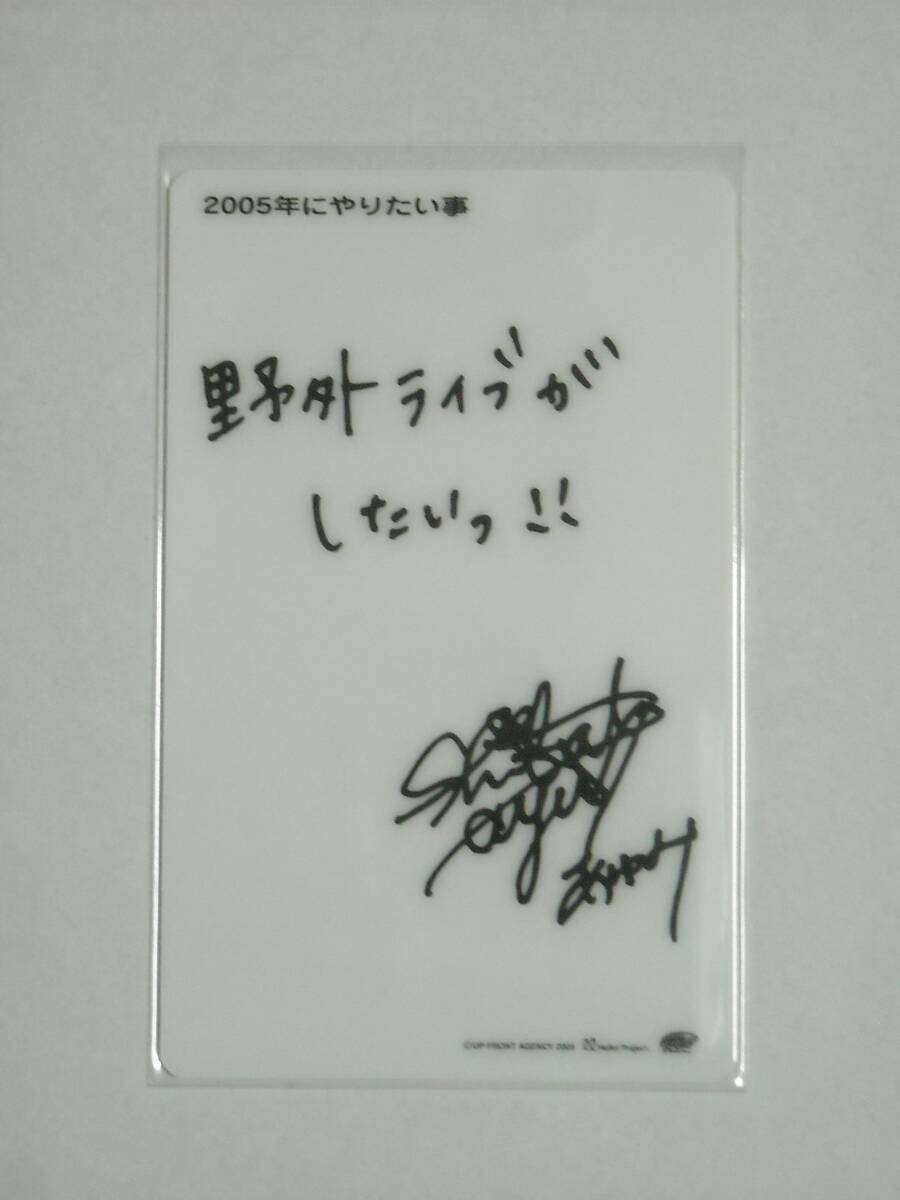 2005年にやりたい事
野外ライブが
したいっ!!
Shibata
ayumi
©UP-FRONT AGENCY 2005 Hello! Project.